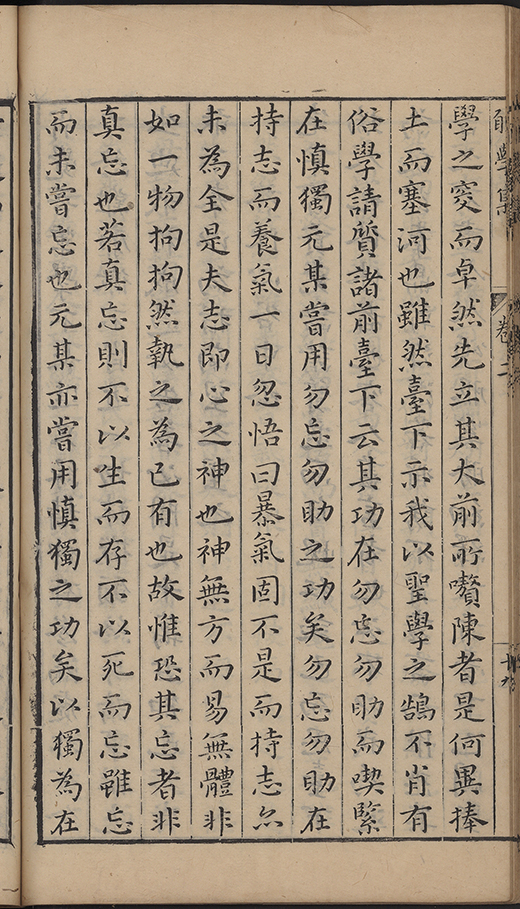 學之突而卓然先立其大前所嚽陳者是何異捧
土而塞河也雖然臺下示我以聖學之鵠不肖有
俗學請質諸前臺下云其功在勿忘勿助而喫緊
在慎獨元某嘗用勿忘勿助之功矣勿忘勿助在
持志而養氣一日忽悟曰暴氣固不是而持志亦
未為全是夫志即心之神也神無方而易無體非
如一物拘拘然執之為已有也故惟恐其忘者非
真忘也若真忘則不以生而存不以死而忘雖忘
而未嘗忘也元某亦嘗用慎獨之功矣以獨為在
卷二
十九